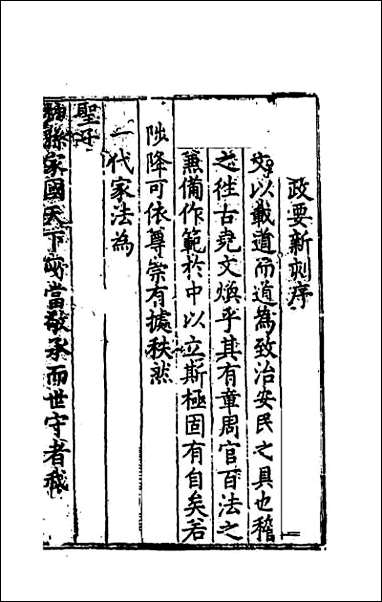 政要新刻序
文以載道而道為致治安民之具也稽
之徃古堯文煥乎其有章周官百法之
兼備作範於中以立斯極固有自矣若
陟降可依尊崇有據秩然
一代家法為
聖子
神孫家國天下所當敬承而世守者我
一